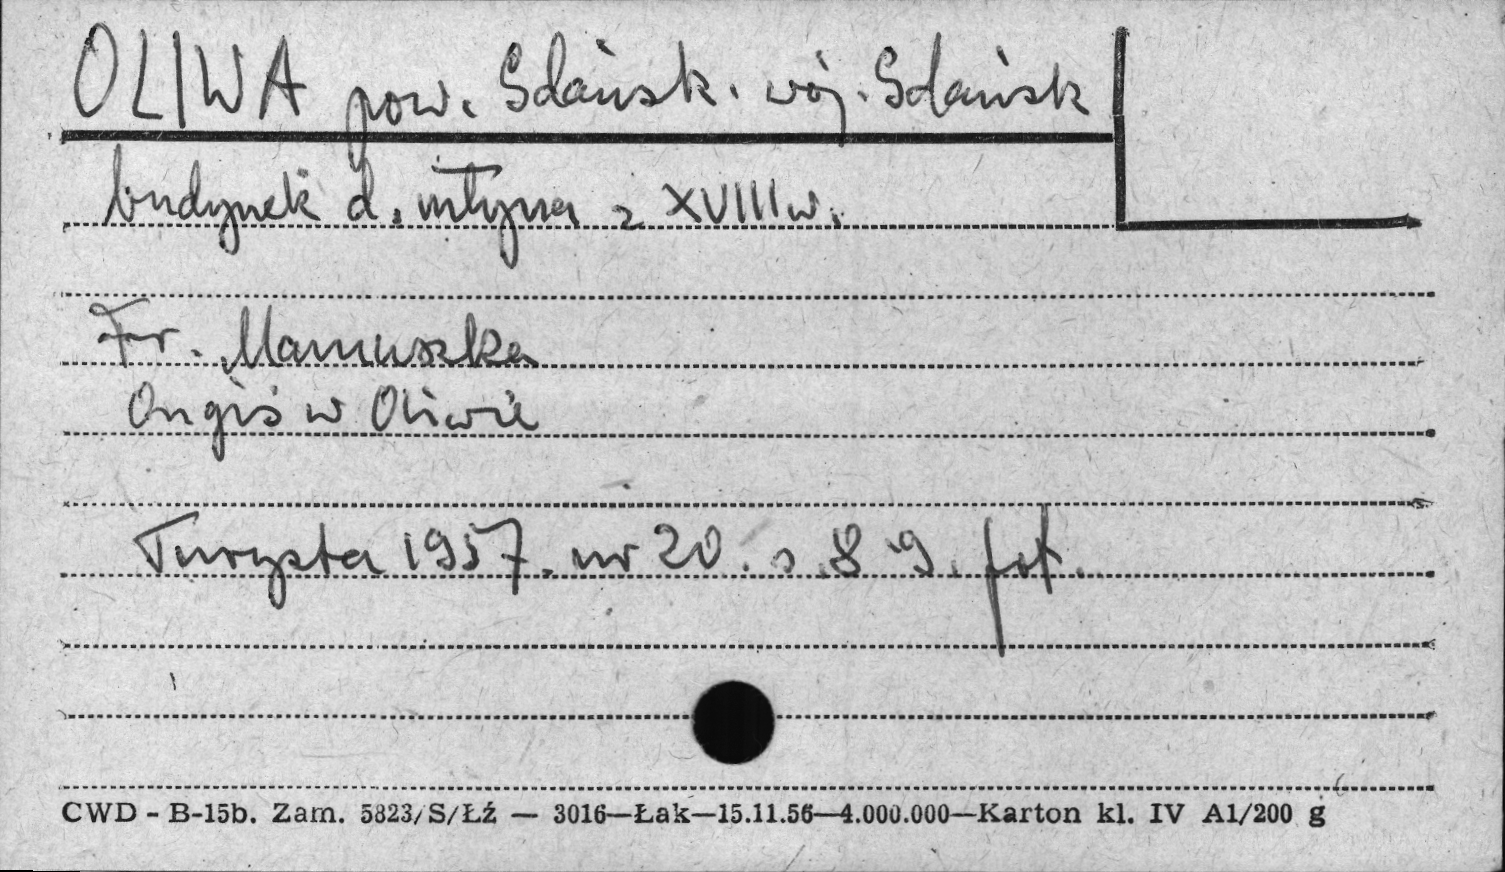 OLIWA pow. Gdańsk. woj. Gdańsk
budynek d. młyna z XVIII w.
Fr. Mamuszka
Ongiś w Oliwie
Turysta 1957. nr 20. s. 8 9. fot.
CWD - B-15b. Zam. 5823/S/Łź — 3016—Łak—15.11.56—4.000.000—Karton kl. IV A1/200 g